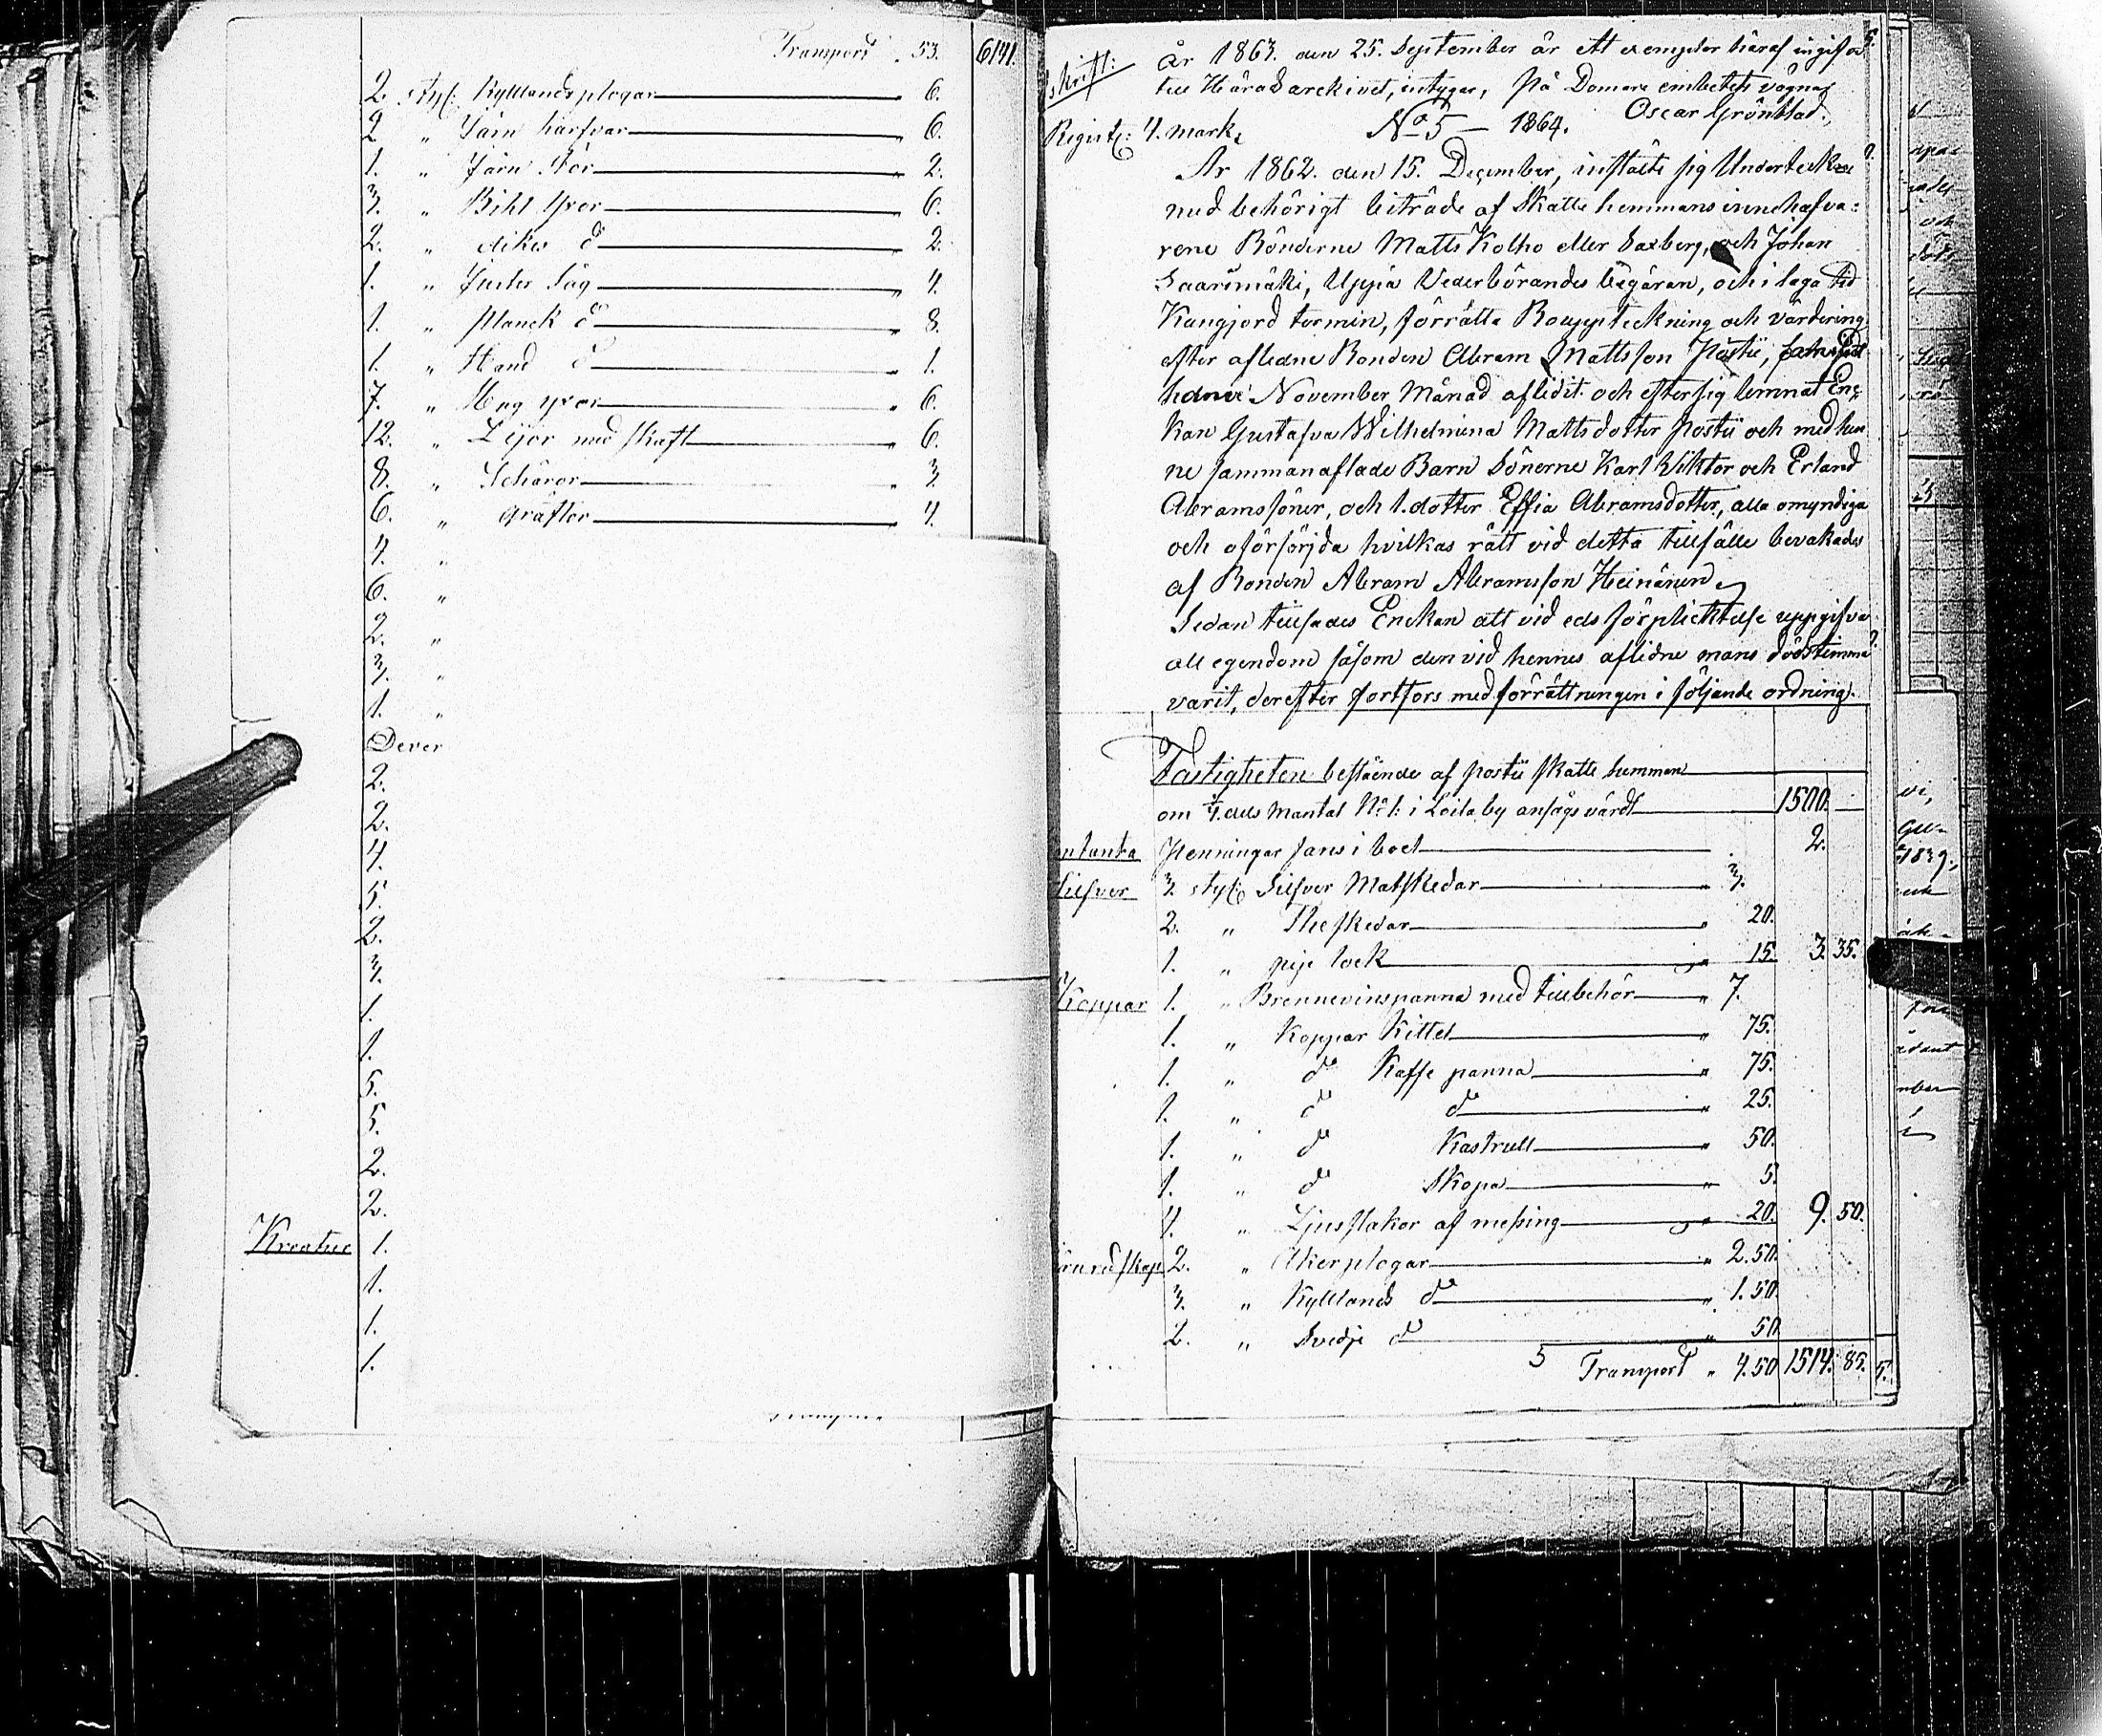 Transport " 53. 6141.
2. styc: Kyttlandsplogar " 6.
2 " Järn harfvar " 6.
1. " Järn Stör " 2.
3. " Bihl Yxor " 6.
2. " dikes do " 2.
1. " Juster Såg " 4.
1. " Planck do " 8.
1. " Hand do " 1.
7. " Hug yxor " 6.
12. " Lijor med skaft " 6.
8. " Schäror " 3.
6. " Gräftor " 4.
4. "
6. "
2. "
3. "
1. "
Dever
2.
2.
4.
5.
2.
3.
1.
1.
5.
5.
2.
2.
Kreatur 1.
1.
1.
1.
År 1863. den 25. September är ett exemplar häraf ingifvet
till Häradsarckivet, intygar, På Domare embetets vägnar
Oscar Grönblad.
Registr: 4. mark. No 5 — 1864.
År 1862. den 15. December, instälte sig Undertecknad
med behörigt biträde af Skatte hemmans innehafva:
rene Bönderne Matts Kolho eller Saxberg, och Johan
Saarismäki, Uppå Vederbörandes begäran, och i laga tid
Kungjord termin, förrätta Bouppteckning och värdering
efter aflidne Bonden Abram Mattsson Postii,
sidne November Månad aflidit och efter sig lemnat En:
kan Gustafva Wilhelmina Mattsdotter Postii och med hen
ne sammanaflade Barn Sönerne Karl Viktor och Erland
Abramssöner, och 1. dotter Effia Abramsdotter, alla omyndiga
och oförsörjda hvilkas rätt vid detta tillfälle bevakades
af Bonden Abram Abramsson Heinänen
Sedan tillsades Enckan att vid eds förplicktelse uppgifva
all egendom såsom den vid hennes aflidne mans dödstimma
varit, derefter fortfors med förrättningen i följande ordning.
Fastigheten bestående af Postii skatte hemman
om 1/4. dels Mantal No 1: i Loila by ansågs värdt 1500. —
Penningar fans i boet 2.
Silfver 3. styc Silfver Matskedar " 3.
2. " Theskedar " 20.
1. " pip lock " 15. 3. 35.
Koppar 1. " Brennevinspanna med tillbehör " 7.
1. " Koppar Kittel " 75.
1. " do Kaffe panna " 75.
1. " do do " 25.
1. " do Kastrull " 50.
1. " do Skopa " 5.
4. " Ljusstakar af messing " 20. 9. 50.
2. " Åkerplogar " 2.50.
3. " Kyttlands do " 1.50.
2. " Svedje do " 50
5 Transport " 4.50 1514. 85.